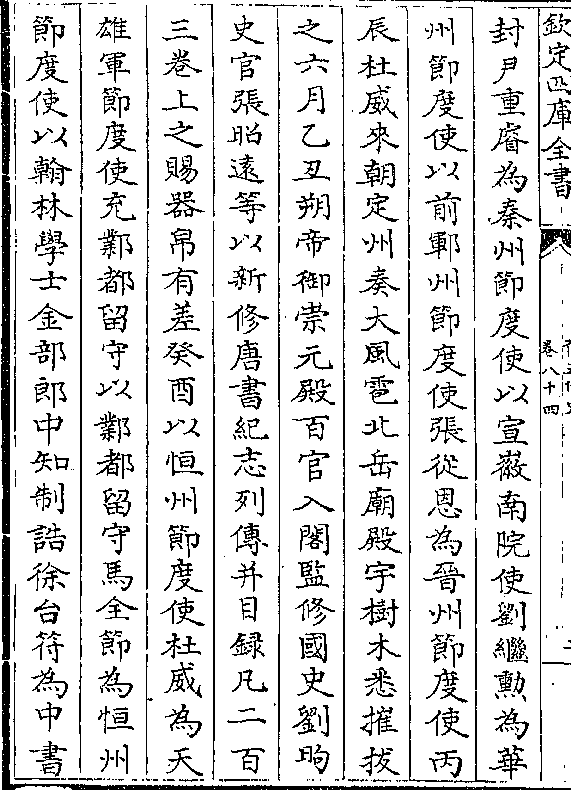 欽定四庫全書
卷八十四
封尹重睿為秦州節度使以宣徽南院使劉繼勲為華
州節度使以前鄆州節度使張從恩為晉州節度使丙
辰杜威來朝定州奏大風雹北岳廟殿宇樹木悉摧拔
之六月乙丑朔帝御崇元殿百官入閣監修國史劉昫
史官張昭遠等以新修唐書紀志列傳并目録凡二百
三卷上之賜器帛有差癸酉以恒州節度使杜威為天
雄軍節度使充鄴都留守以鄴都留守馬全節為恒州
節度使以翰林學士金部郎中知制誥徐台符為中書